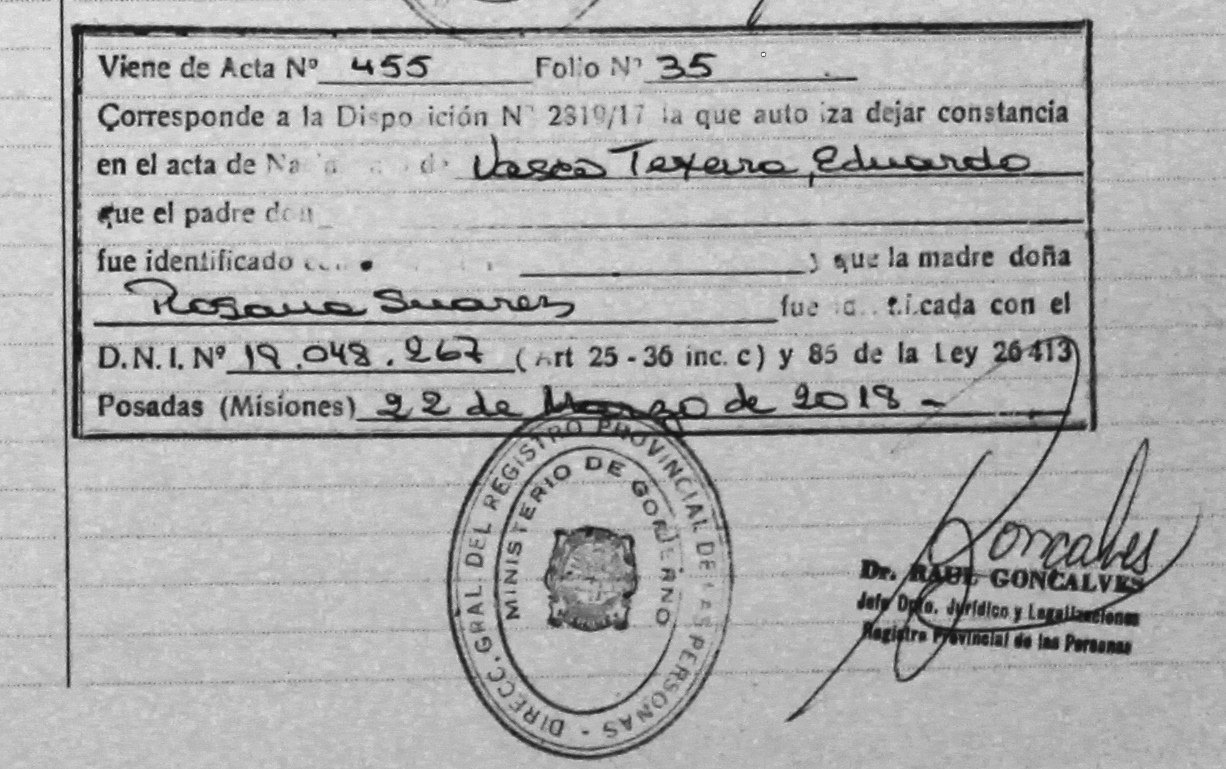 Viene de Acta Nº 455 Folio Nº 35
Corresponde a la Dispo ición Nº 2319/17 la que auto iza dejar constancia
en el acta de Vasco Texeira, Eduardo
que el padre don
fue identificado y que la madre doña
Rosana Suarez fue cada con el
D.N.I. Nº 19.048.267 (Art 25 - 36 inc. c) y 85 de la Ley 26413
Posadas (Misiones) 22 de Marzo de 2018 -
DIRECC. GRAL. DEL REGISTRO PROVINCIAL DE LAS PERSONAS -
MINISTERIO DE GOBIERNO
Goncalves
Dr. RAUL GONCALVES
Jefe Dpto. Jurídico y Legalizaciones
Registro Provincial de las Personas